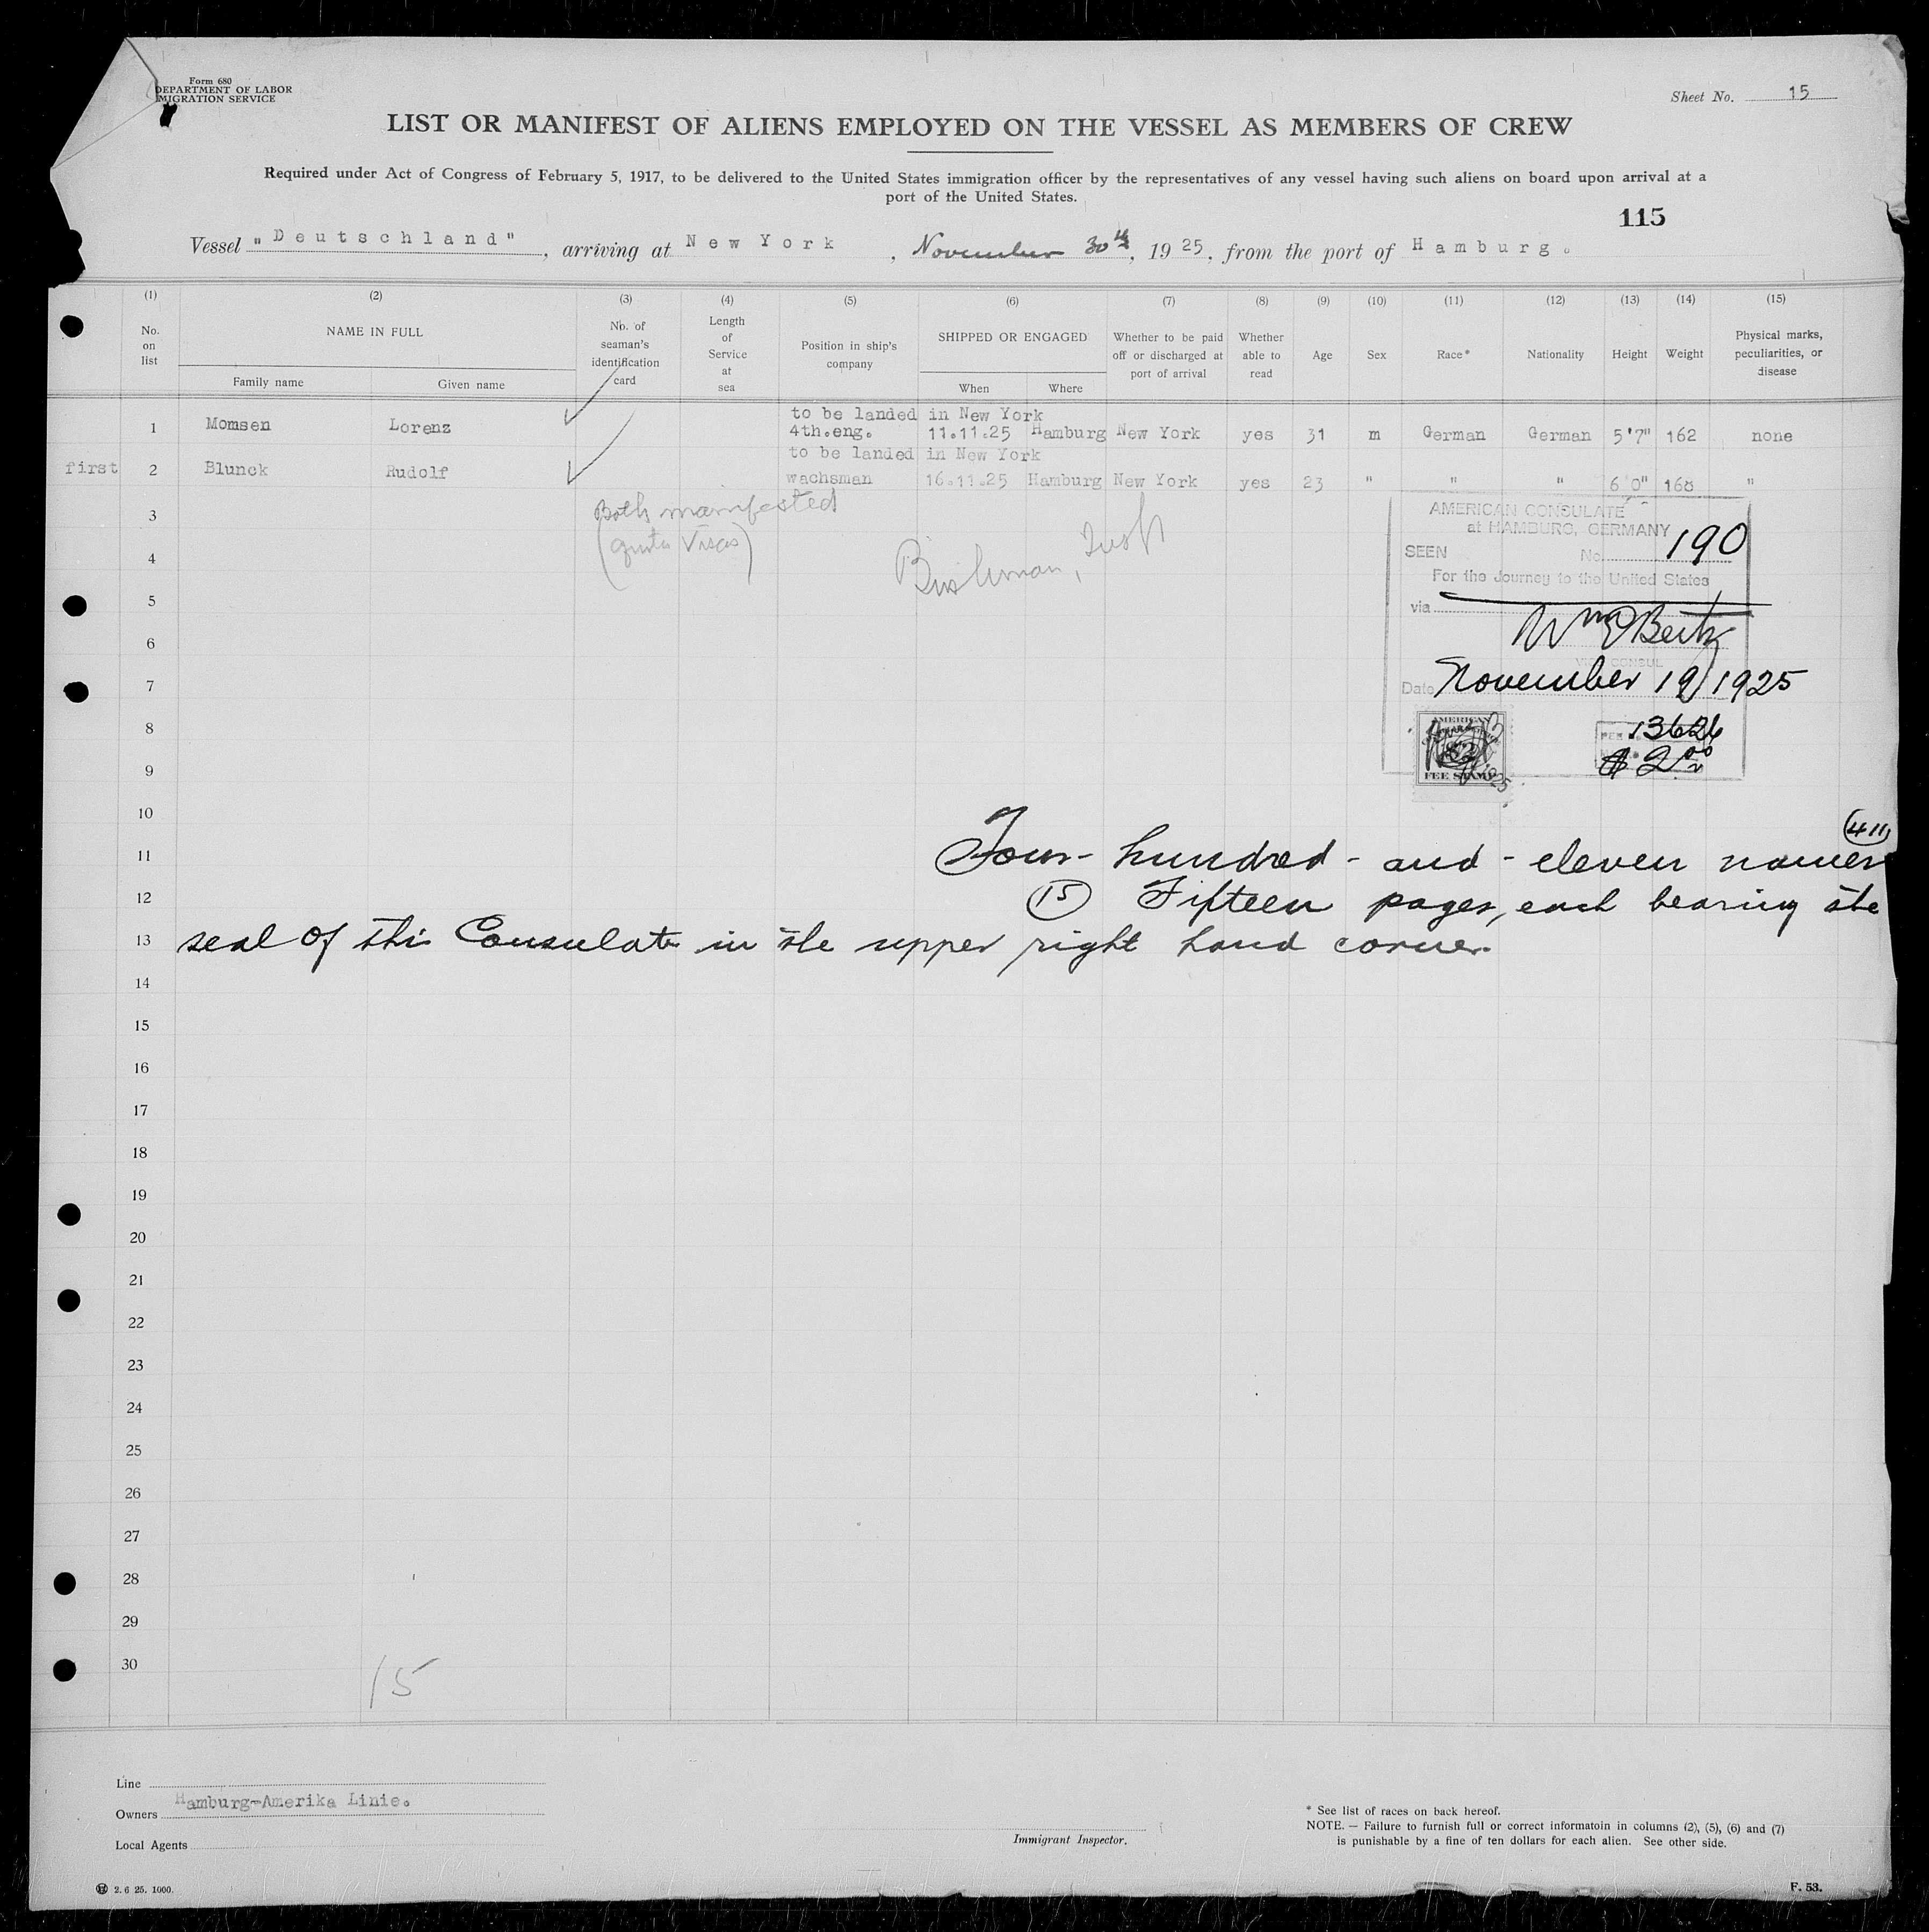 Form 680
DEPARTMENT OF LABOR
MIGRATION SERVICE
Sheet No. 15
LIST OR MANIFEST OF ALIENS EMPLOYED ON THE VESSEL AS MEMBERS OF CREW
Required under Act of Congress of February 5, 1917, to be delivered to the United States immigration officer by the representatives of any vessel having such aliens on board upon arrival at a
port of the United States.
115
Vessel "Deutschland", arriving at New York, November 30th, 1925, from the port of Hamburg.
(1) (2) (3) (4) (5) (6) (7) (8) (9) (10) (11) (12) (13) (14) (15)
No. on list
NAME IN FULL
Family name Given name
No. of seaman's identification card
Length of Service at sea
Position in ship's company
SHIPPED OR ENGAGED
When Where
Whether to be paid off or discharged at port of arrival
Whether able to read
Age
Sex
Race*
Nationality
Height
Weight
Physical marks, peculiarities, or disease
to be landed in New York
1 Momsen Lorenz 4th.eng. 11.11.25 Hamburg New York yes 31 m German German 5'7" 162 none
to be landed in New York
first 2 Blunck Rudolf wachsman 16.11.25 Hamburg New York yes 23 " " " 6'0" 168 "
3 Both manifested
(quota Visas)
4
5
6
7
8
9
10
11
12
13
14
15
16
17
18
19
20
21
22
23
24
25
26
27
28
29
30
AMERICAN CONSULATE
at HAMBURG, GERMANY
SEEN No. 190
For the Journey to the United States
via
CONSUL
Date November 19, 1925
AMERICAN
FEE STAMP
13626
$ 2.00
(411)
Four-hundred-and-eleven names
(15) Fifteen pages, each bearing the
seal of this Consulate in the upper right hand corner.
15
Line
Owners Hamburg-Amerika Linie.
Local Agents
Immigrant Inspector.
* See list of races on back hereof.
NOTE. — Failure to furnish full or correct informatoin in columns (2), (5), (6) and (7)
is punishable by a fine of ten dollars for each alien. See other side.
2. 6 25. 1000.
F. 53.